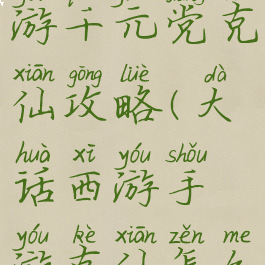 游千元党克
xiān gōng lüè dà
仙攻略(大
huà xī yóu shǒu
话西游手
yóu kè xiān zěn me
游克仙怎么